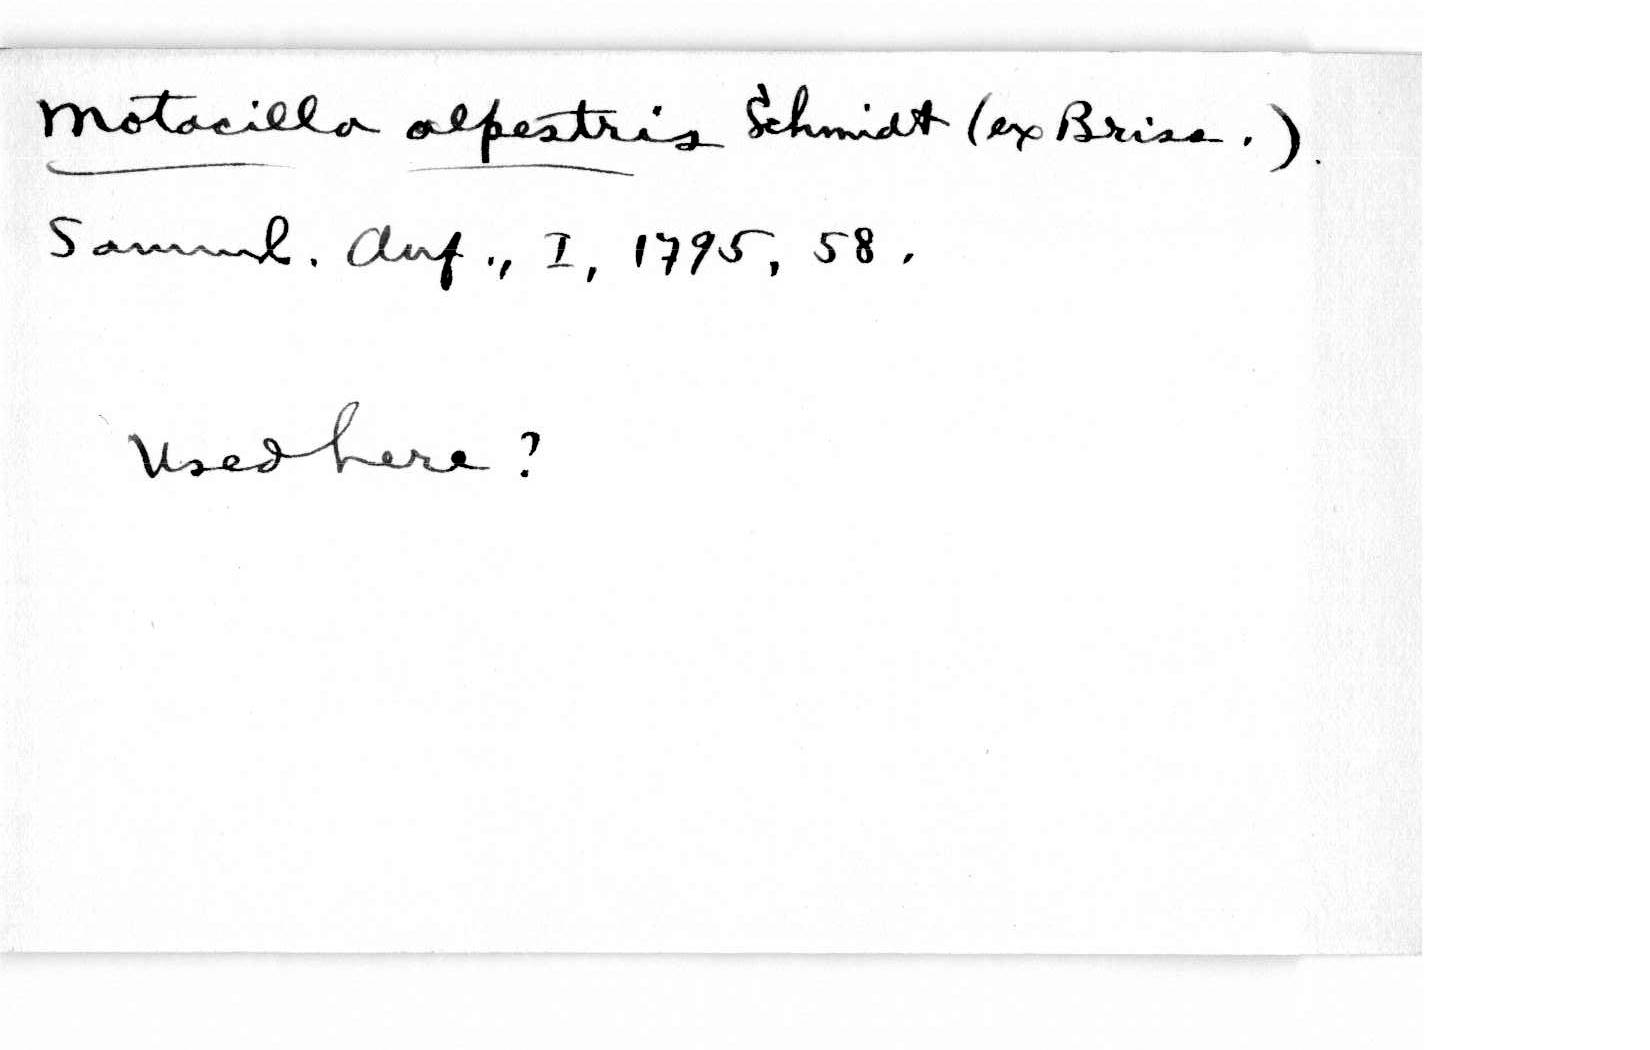 Motacilla alpestris Schmidt (ex Briss.).
Samml. Auf., I, 1795, 58.
Used here?